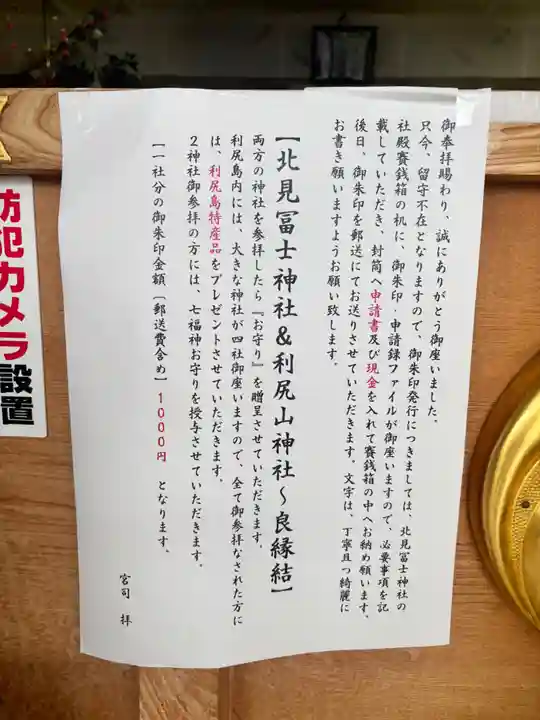 御奉拝賜わり、誠にありがとう御座いました。
只今、留守不在となりますので、御朱印発行につきましては、北見冨士神社の
社殿賽銭箱の机に、御朱印・申請録ファイルが御座いますので、必要事項を記
載していただき、封筒へ申請書及び現金を入れて賽銭箱の中へお納め願います。
後日、御朱印を郵送にてお送りさせていただきます。文字は、丁寧且つ綺麗に
お書き願いますようお願い致します。
【北見冨士神社&利尻山神社~良縁結】
両方の神社を参拝したら『お守り』を贈呈させていただきます。
利尻島内には、大きな神社が四社御座いますので、全て御参拝なされた方に
は、利尻島特産品をプレゼントさせていただきます。
2神社御参拝の方には、七福神お守りを授与させていただきます。
【一社分の御朱印金額〔郵送費含め】1000円 となります。
宮司 拝
防犯カメラ設置